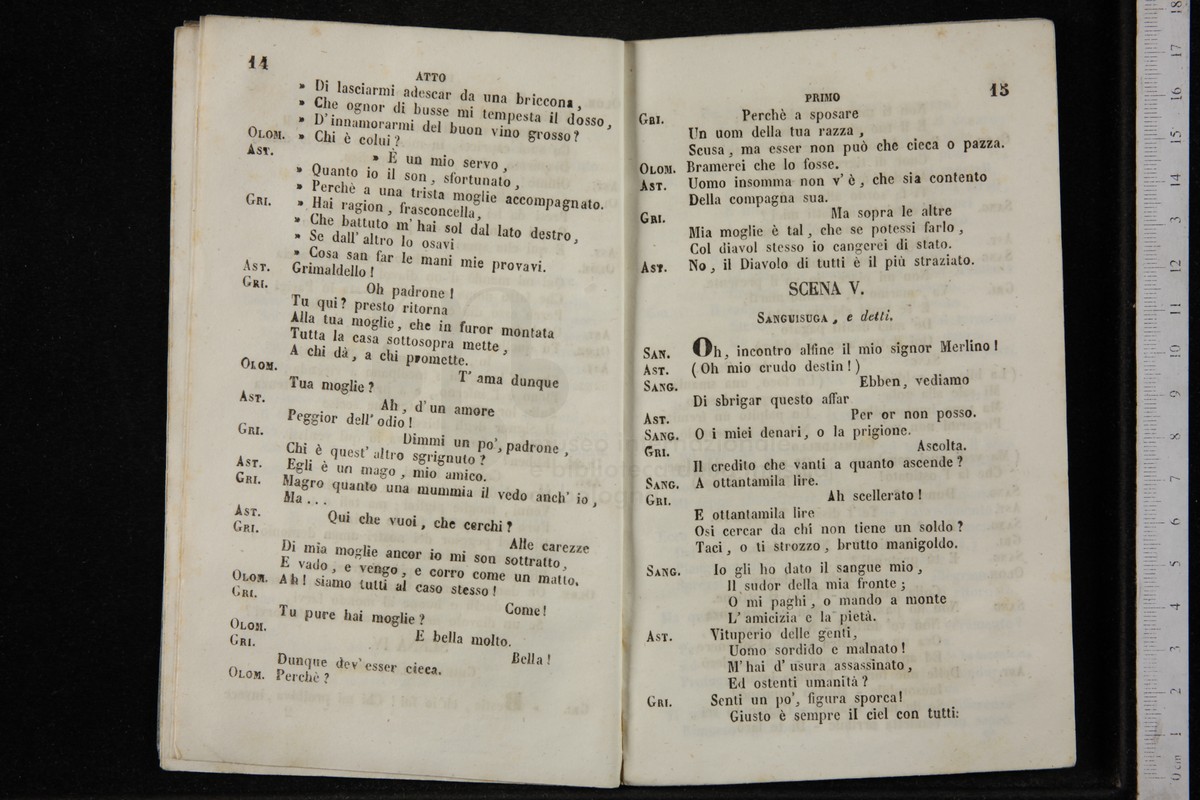 14
ATTO
» Di lasciarmi adescar da una briccona,
» Che ognor di busse mi tempesta il dosso,
» D'innamorarmi del buon vino grosso?
OLOM. » Chi è colui?
AST. » È un mio servo,
» Quanto io il son, sfortunato,
» Perchè a una trista moglie accompagnato.
GRI. » Hai ragion, frasconcella,
» Che battuto m'hai sol dal lato destro,
» Se dall'altro lo osavi
» Cosa san far le mani mie provavi.
AST. Grimaldello!
GRI. Oh padrone!
Tu qui? presto ritorna
Alla tua moglie, che in furor montata
Tutta la casa sottosopra mette,
A chi dà, a chi promette.
OLOM. T'ama dunque
Tua moglie?
AST. Ah, d'un amore
Peggior dell'odio!
GRI. Dimmi un po', padrone,
Chi è quest'altro sgrignuto?
AST. Egli è un mago, mio amico.
GRI. Magro quanto una mummia il vedo anch'io,
Ma...
AST. Qui che vuoi, che cerchi?
GRI. Alle carezze
Di mia moglie ancor io mi son sottratto,
E vado, e vengo, e corro come un matto.
OLOM. Ah! siamo tutti al caso stesso!
GRI. Come!
Tu pure hai moglie?
OLOM. E bella molto.
GRI. Bella!
Dunque dev'esser cieca.
OLOM. Perchè?
PRIMO
15
GRI. Perchè a sposare
Un uom della tua razza,
Scusa, ma esser non può che cieca o pazza.
OLOM. Bramerei che lo fosse.
AST. Uomo insomma non v'è, che sia contento
Della compagna sua.
GRI. Ma sopra le altre
Mia moglie è tal, che se potessi farlo,
Col diavol stesso io cangerei di stato.
AST. No, il Diavolo di tutti è il più straziato.
SCENA V.
SANGUISUGA, e detti.
SAN. Oh, incontro alfine il mio signor Merlino!
AST. (Oh mio crudo destin!)
SANG. Ebben, vediamo
Di sbrigar questo affar
AST. Per or non posso.
SANG. O i miei denari, o la prigione.
GRI. Ascolta.
Il credito che vanti a quanto ascende?
SANG. A ottantamila lire.
GRI. Ah scellerato!
E ottantamila lire
Osi cercar da chi non tiene un soldo?
Taci, o ti strozzo, brutto manigoldo.
SANG. Io gli ho dato il sangue mio,
Il sudor della mia fronte;
O mi paghi, o mando a monte
L'amicizia e la pietà.
AST. Vituperio delle genti,
Uomo sordido e malnato!
M'hai d'usura assassinato,
Ed ostenti umanità?
GRI. Senti un po', figura sporca!
Giusto è sempre il ciel con tutti: